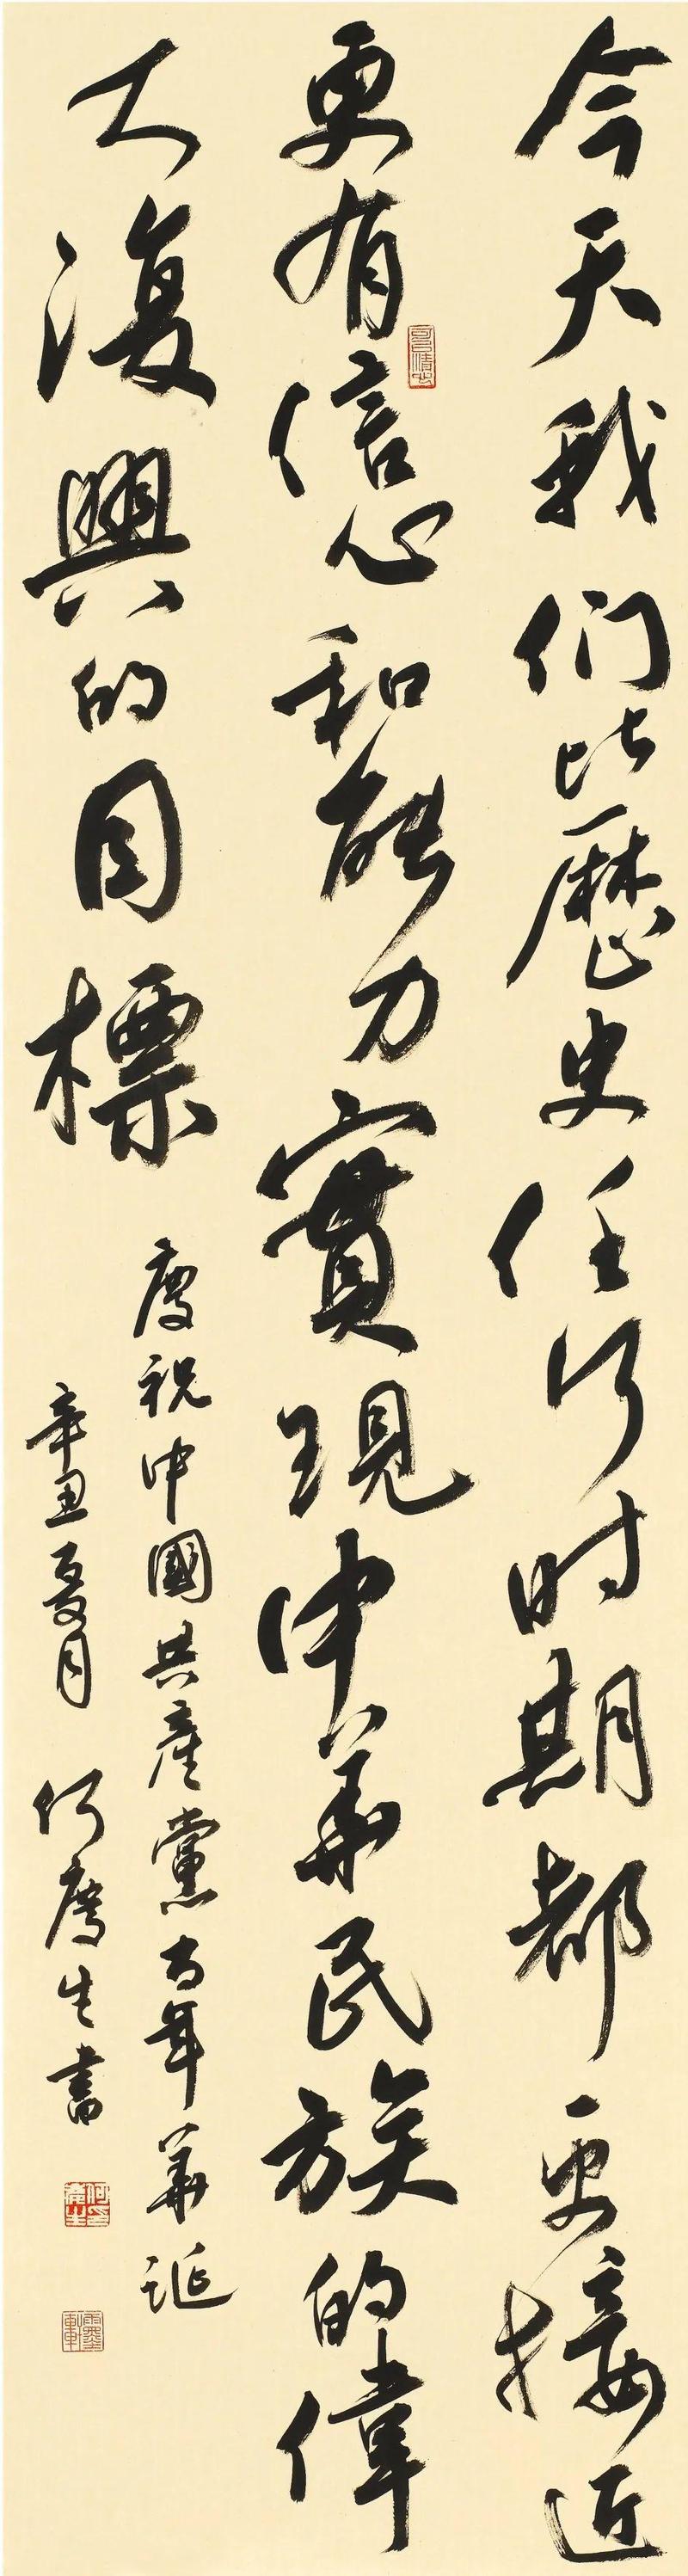 今天我们比歷史任何时期都更接近
更有信心和能力實現中華民族的偉
大復興的目標
慶祝中國共產黨百年華誕
辛丑夏月 何生書